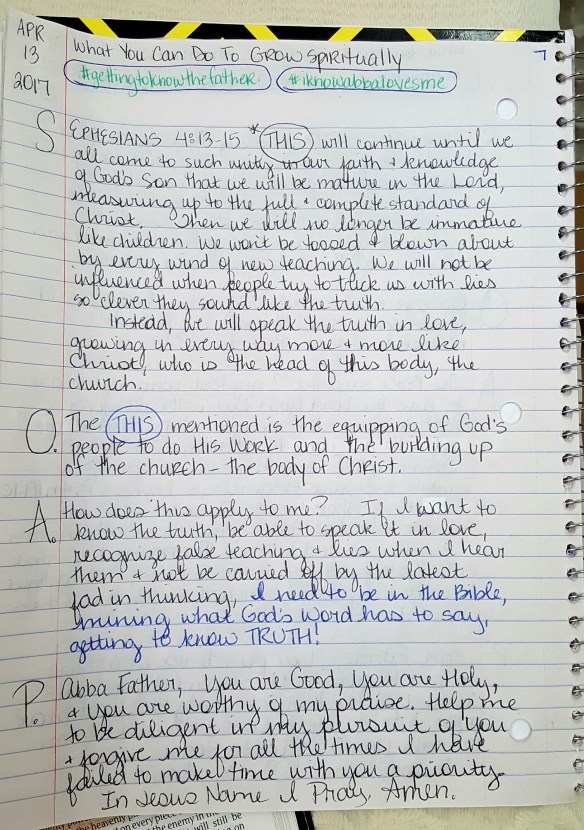 APR
13
2017
What You Can Do To Grow Spiritually
7
#gettingtoknowthefather. #iknowabbalovesme
S
EPHESIANS 4:13-15 * THIS will continue until we
all come to such unity in our faith & knowledge
of God's Son that we will be mature in the Lord,
measuring up to the full & complete standard of
Christ. Then we will no longer be immature
like children. We won't be tossed & blown about
by every wind of new teaching. We will not be
influenced when people try to trick us with lies
so clever they sound like the truth.
Instead, we will speak the truth in love,
growing in every way more & more like
Christ, who is the head of this body, the
church.
O.
The THIS mentioned is the equipping of God's
people to do HIS WORK and the building up
of the church - the body of Christ.
A.
How does this apply to me? If I want to
know the truth, be able to speak it in love,
recognize false teaching & lies when I hear
them & not be carried off by the latest
fad in thinking, I need to be in the Bible,
mining what God's Word has to say,
getting to know TRUTH!
P.
Abba Father, You are Good, You are Holy,
& You are worthy of my praise. Help me
to be diligent in my pursuit of You
& forgive me for all the times I have
failed to make time with you a priority.
In Jesus Name I Pray, Amen.
the heavenly
on every piece
the enemy in th
will still be
on